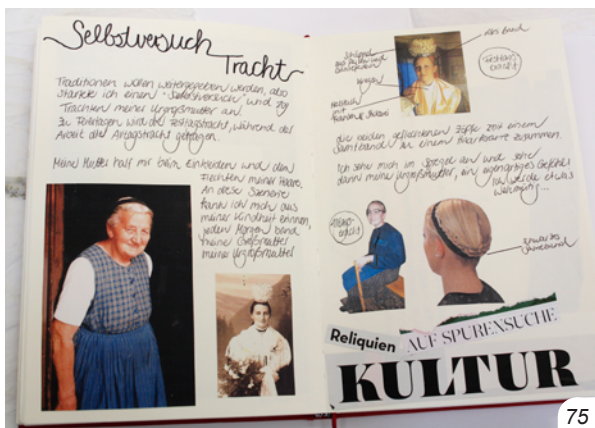 Selbstversuch
Tracht
Traditionen wollen weitergegeben werden, also
startete ich einen "Selbstversuch" und zog
Trachten meiner Urgroßmutter an.
Zu Feiertagen wird die Festtagstracht, während der
Arbeit die Alltagstracht getragen.
Meine Mutter half mir beim einkleiden und dem
flechten meiner Haare.
An diese Szenerie
kann ich mich aus
meiner Kindheit erinnern,
jeden Morgen band
meine Großmutter
meiner Urgroßmutter
mit
die beiden geflochtenen Zöpfe mit einem
Samtband zu einem Haarkranz zusammen.
Ich sehe mich im Spiegel an und sehe
darin meine Urgroßmutter, ein eigenartiges Gefühl
ich werde etwas
wehmütig...
schwarzes
Samtband
Reliquien AUF SPURENSUCHE
KULTUR
75